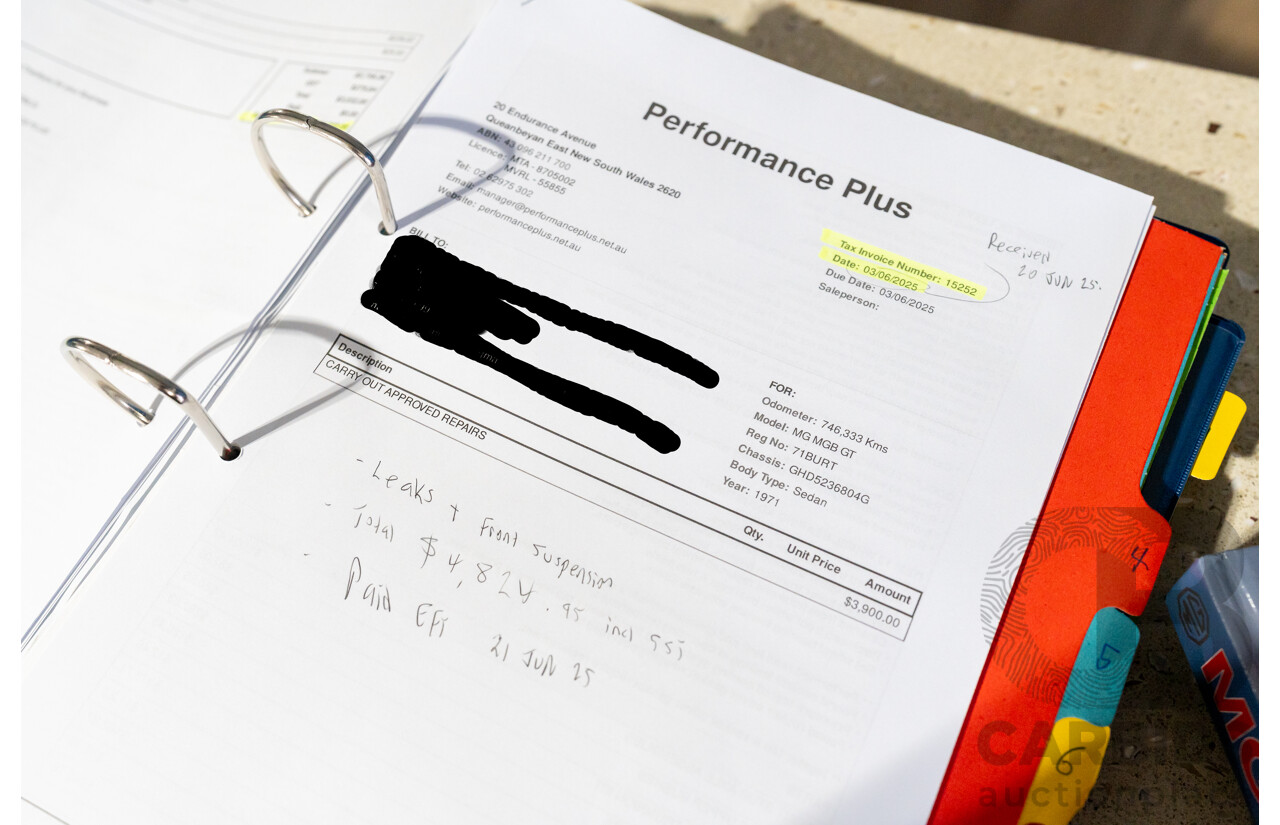 Performance Plus
20 Endurance Avenue
Queanbeyan East New South Wales 2620
ABN: 43 096 211 700
Licence: MTA - 8705002
MVRL - 55855
Tel: 02 62975 302
Email: manager@performanceplus.net.au
Website: performanceplus.net.au
BILL TO:
Tax Invoice Number: 15252
Date: 03/06/2025
Due Date: 03/06/2025
Saleperson:
Received
20 JUN 25.
FOR:
Odometer: 746,333 Kms
Model: MG MGB GT
Reg No: 71BURT
Chassis: GHD5236804G
Body Type: Sedan
Year: 1971
Description Qty. Unit Price Amount
CARRY OUT APPROVED REPAIRS $3,900.00
- Leaks + Front Suspension
- Total $4,824.95 incl GST
- Paid EFT 21 JUN 25
4
5
6
MG